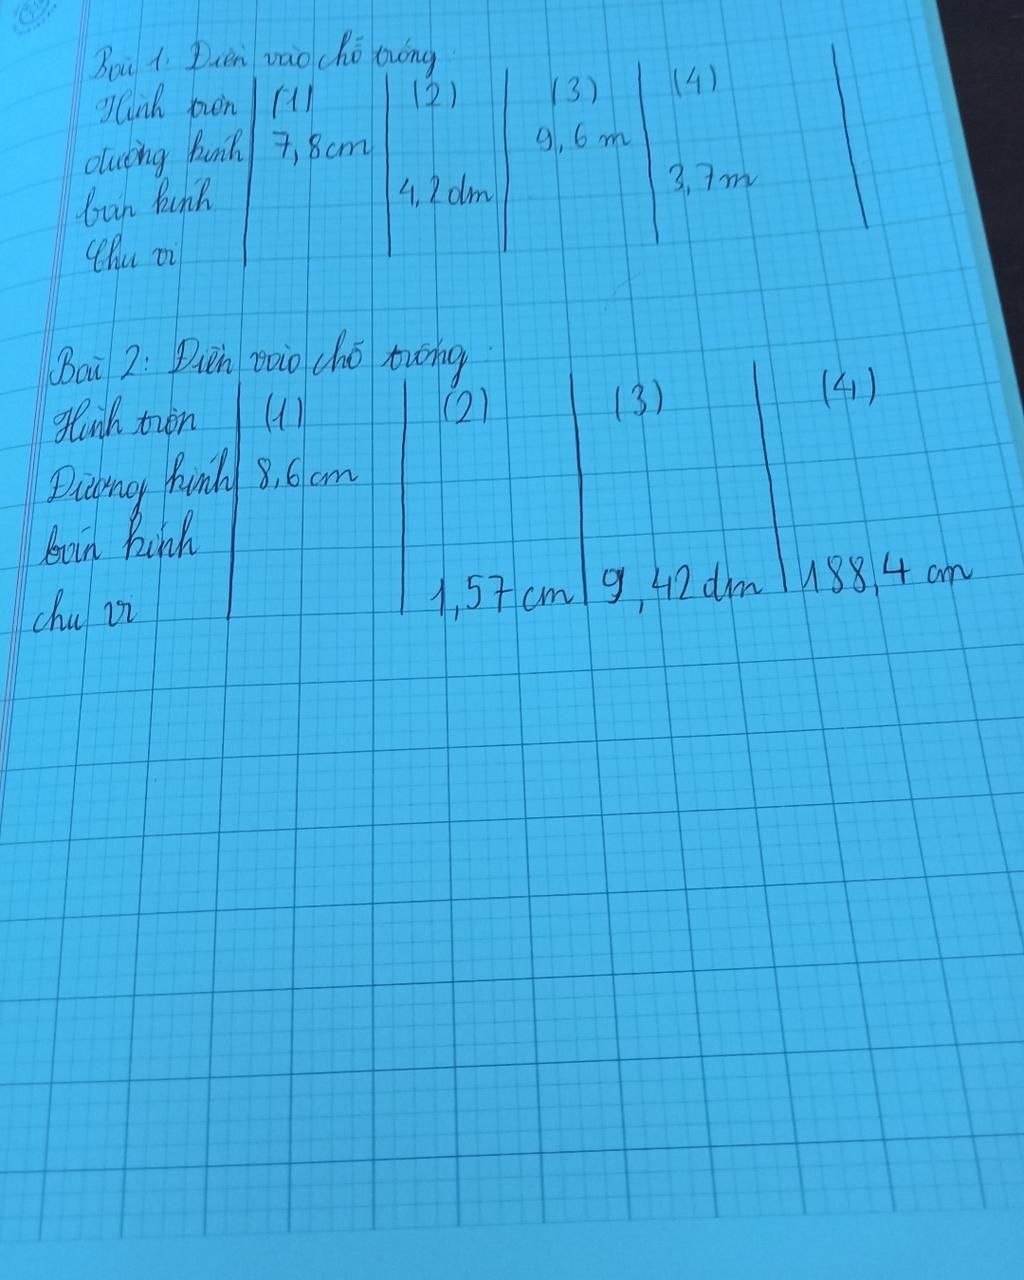 Bài 1. Điền vào chỗ trống.
Hình tròn (1) (2) (3) (4)
đường kính 7,8cm 9,6m
bán kính 4,2dm 3,7m
Chu vi
Bài 2: Điền vào chỗ trống.
Hình tròn (1) (2) (3) (4)
Đường kính 8,6cm
bán kính
chu vi 1,57cm 9,42dm 188,4cm